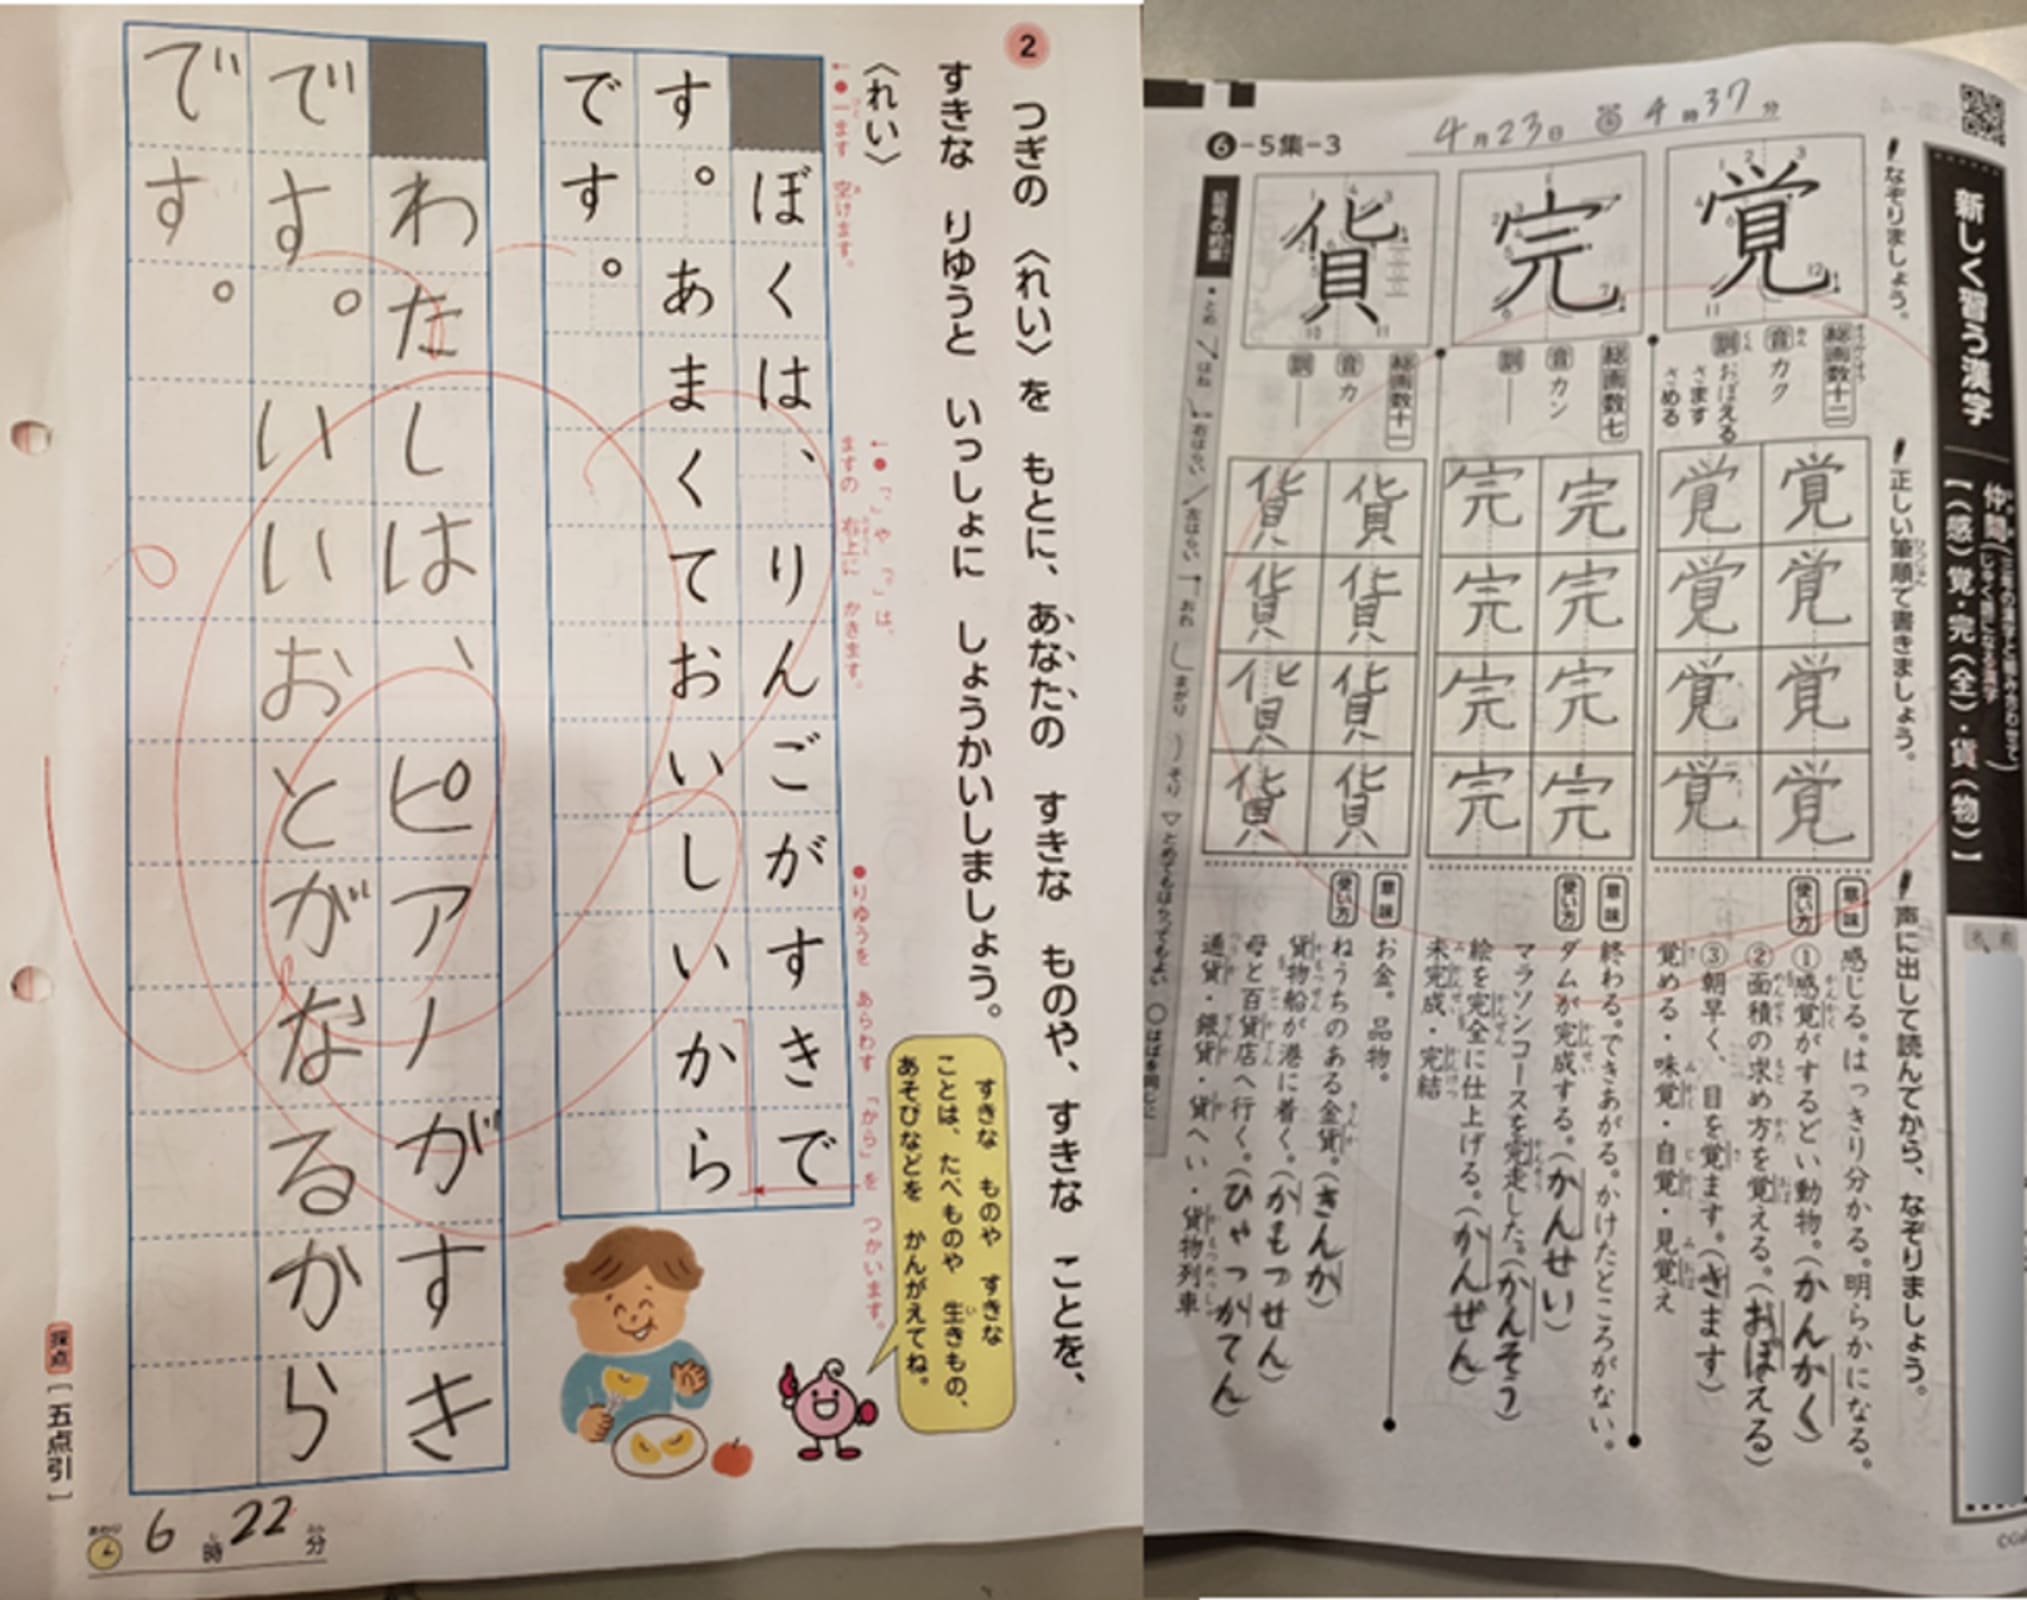 2 つぎの 〈れい〉を もとに、あなたの すきな ものや、すきな ことを、
すきな りゆうと いっしょに しょうかいしましょう。
〈れい〉
●一ます 空けます。
●「、」や「。」は、
ますの 右上に かきます。
●りゆうを あらわす 「から」を つかいます。
ぼくは、りんごがすきで
す。あまくておいしいから
です。
すきな ものや すきな
ことは、たべものや 生きもの、
あそびなどを かんがえてね。
わたしは、ピアノがすき
です。いいおとがなるから
です。
採点[五点引]
おわり 6時22分
4月23日 4時37分
6-5集-3
新しく習う漢字
【(感)覚・完(全)・貨(物)】
なぞりましょう。
正しい筆順で書きましょう。
声に出して読んでから、なぞりましょう。
覚
総画数十二
音 カク
訓 おぼえる
さます
さめる
覚 覚 覚 覚
覚 覚 覚 覚
意味 感じる。はっきり分かる。明らかになる。
使い方 ①感覚がするどい動物。(かんかく)
②面積の求め方を覚える。(おぼえる)
③朝早く、目を覚ます。(さます)
覚める・味覚・自覚・見覚え
完
総画数七
音 カン
訓 ―
完 完 完 完
完 完 完 完
意味 終わる。できあがる。かけたところがない。
使い方 ダムが完成する。(かんせい)
マラソンコースを完走した。(かんそう)
絵を完全に仕上げる。(かんぜん)
未完成・完結
貨
総画数十一
音 カ
訓 ―
貨 貨 貨 貨
貨 貨 貨 貨
意味 お金。品物。
使い方 ねうちのある金貨。(きんか)
貨物船が港に着く。(かもつせん)
母と百貨店へ行く。(ひゃっかてん)
通貨・銀貨・貨へい・貨物列車